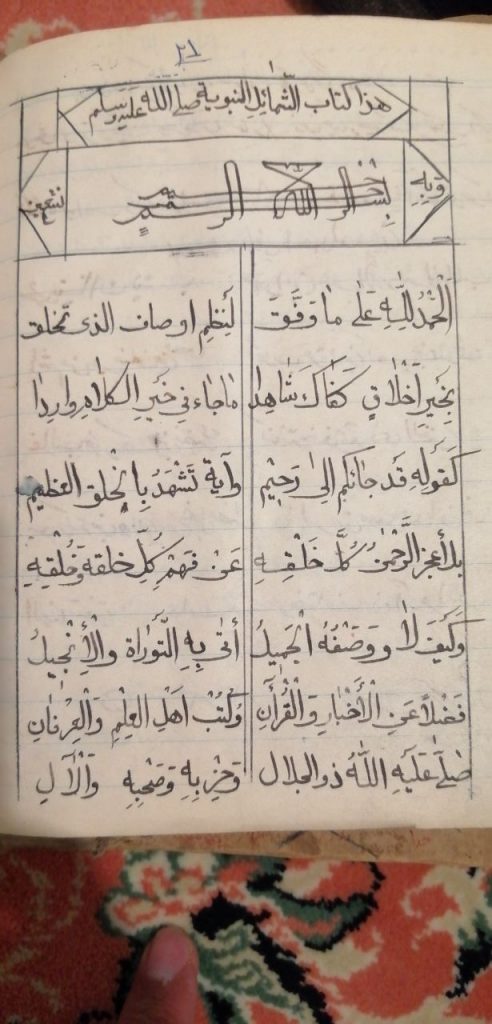 ٢١
هذا كتاب الشَّمائل النبوية صلى الله عليه وسلم
وبه بسم الله الرحمن الرحيم نستعين
اَلْحَمْدُ لِلّٰهِ عَلٰى مٰا وَفَّقَ لِنَظْمِ اوصاف الذى تَخلق
بِخَيرِ اَخْلاٰقٍ كَفٰاكَ شٰاهِدٰا مٰاجٰاء فى خَيرِ الكلاٰمِ وارِدٰا
كَقَولِهِ قَد جائكم الىٰ رَحِيمٍ وآية تَشْهَدُ بِالْخلق العظيم
بل أعجز الرَّحْمٰنُ كُلَّ خَلْقِهِ عَنْ فَهْمِ كُلِ خلقه وَخُلْقِهِ
وَكَيفَ لاٰ و وَصْفُهُ الْجَميلُ أتىٰ بِهِ التَّوْرٰاة وَالْأِنْجيلُ
فَضْلاً عَنِ الْأَخْبٰارِ وَالْقُرْآنِ وَكُتْبِ اَهْلِ العِلْمِ وَالْعِرْفٰانِ
صَلّىٰ عَلَيْهِ اللّٰهُ ذو الجلال وَحِزْبِهِ وَصَحْبِهِ وَالْآلِ